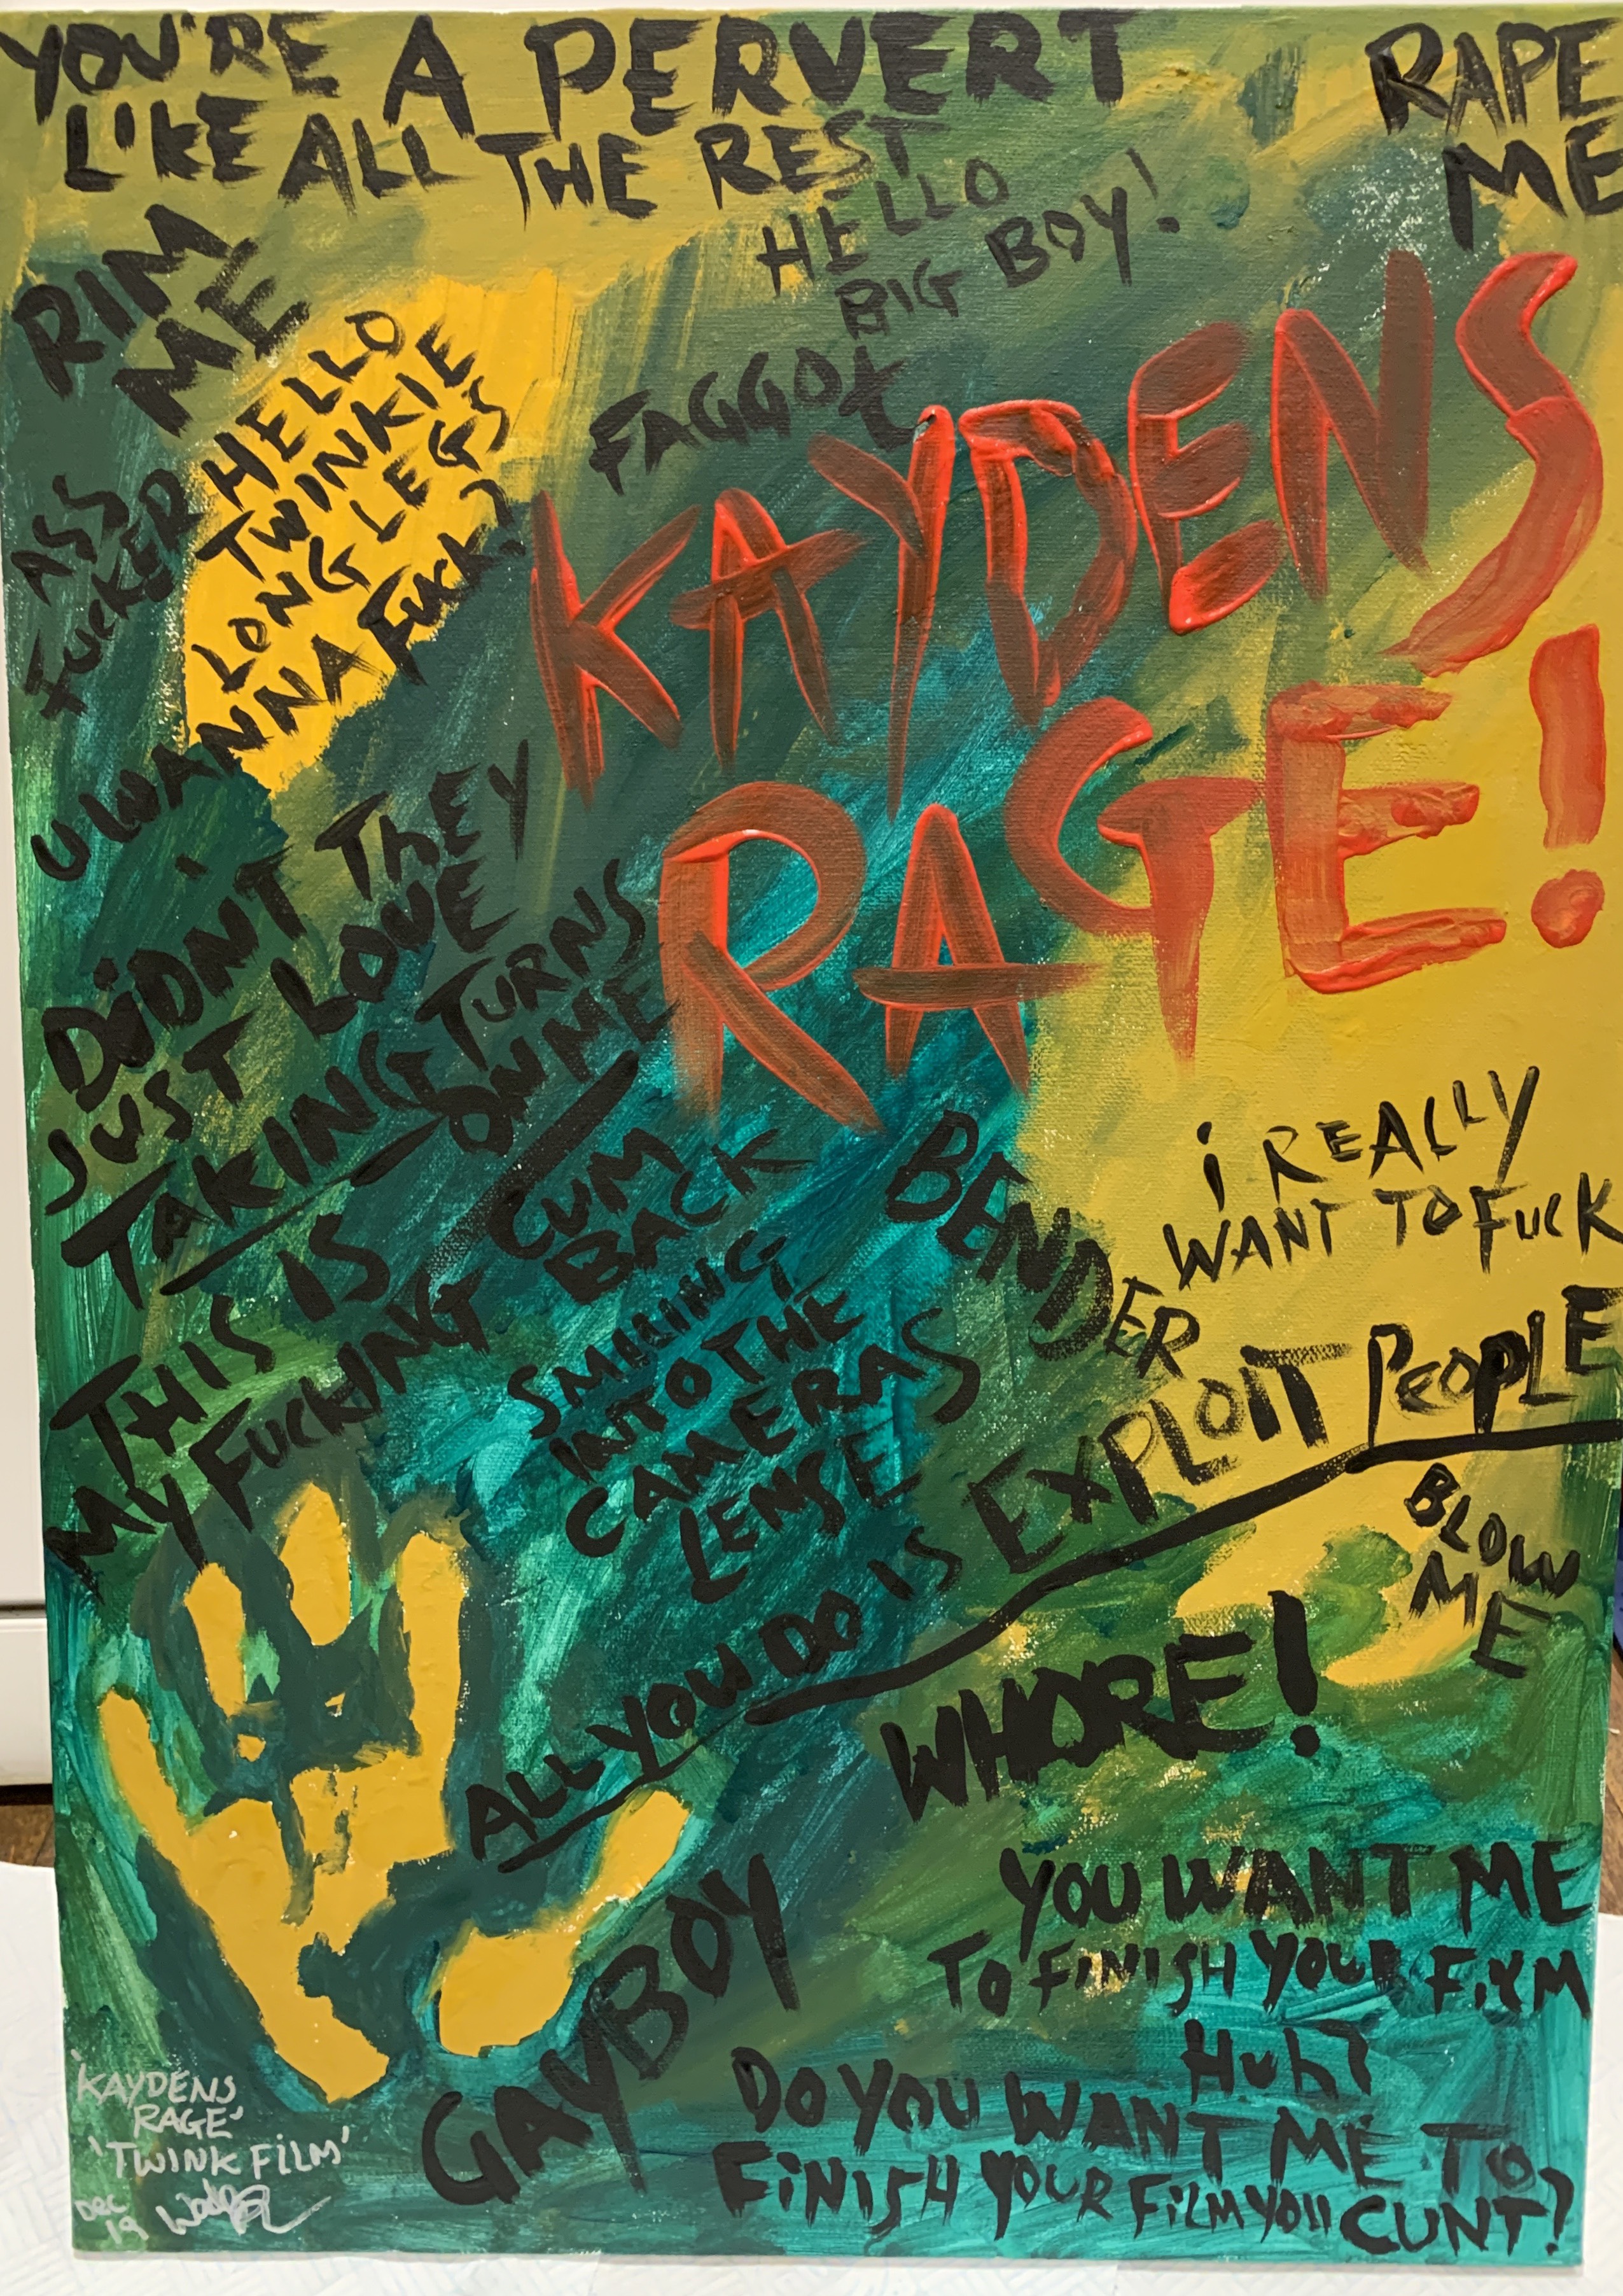 YOU'RE A PERVERT
LIKE ALL THE REST
RAPE
ME
HELLO
BIG BOY!
RIM
ME
FAGGOt
HELLO
TWINKIE
LONG LEGS
U WANNA FUCK?
ASS
FUCKER
KAYDENS
RAGE!
THEY
DiDNT
JUST LOVE
TAKING TURNS
ON ME
THIS IS
MY FUCKING
CUM
BACK
SMILING
INTO THE
CAMERAS
LENSE
BENDER
i REALLY
WANT TO FUCK
ALL YOU DO IS EXPLOIT PEOPLE
BLOW
ME
WHORE!
GAYBOY
YOU WANT ME
TO FINISH YOUR FILM
HUH?
DO YOU WANT ME TO
FINISH YOUR FILM YOU CUNT?
'KAYDENS
RAGE'
'TWINK FILM'
DEC
19